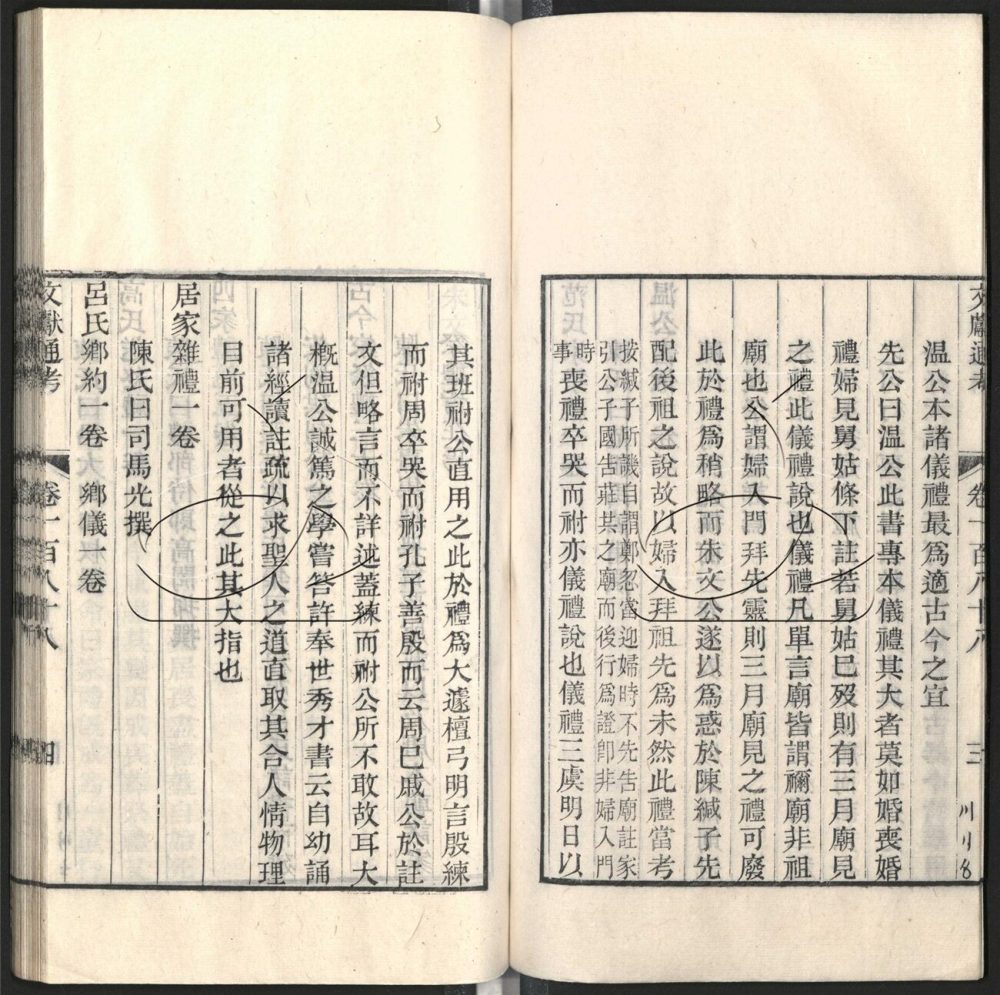 文獻通考 卷一百八十八 三
溫公本諸儀禮最爲適古今之宜
先公曰溫公此書專本儀禮其大者莫如婚喪婚
禮婦見舅姑條下註若舅姑已歿則有三月廟見
之禮此儀禮說也儀禮凡單言廟皆謂禰廟非祖
廟也公謂婦入門拜先靈則三月廟見之禮可廢
此於禮爲稍略而朱文公遂以爲惑於陳鍼子先
配後祖之說故以婦入拜祖先爲未然此禮當考
按緘子所譏自謂鄭忽當迎婦時不先告廟註家
引公子圍告莊共之廟而後行爲證卽非婦入門
時
事
喪禮卒哭而祔亦儀禮說也儀禮三虞明日以
其班祔公直用之此於禮爲大遽檀弓明言殷練
而祔周卒哭而祔孔子善殷而云周已戚公於註
文但略言而不詳述蓋練而祔公所不敢故耳大
概溫公誠篤之學嘗答許奉世秀才書云自幼誦
諸經讀註疏以求聖人之道直取其合人情物理
目前可用者從之此其大指也
居家雜禮一卷
陳氏曰司馬光撰
呂氏鄉約一卷 鄉儀一卷
文獻通考 卷一百八十八 四